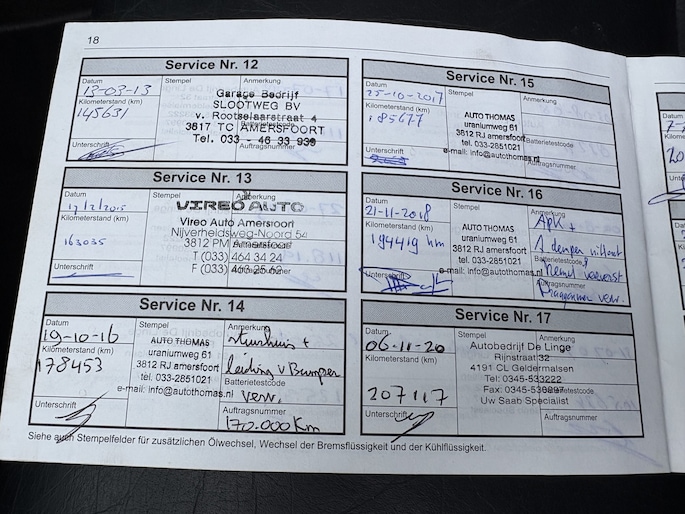 18
Service Nr. 12
Datum
13-03-13
Kilometerstand (km)
145631
Unterschrift
Stempel
Anmerkung
Garage Bedrijf
SLOOTWEG BV
v. Rootselaarstraat 4
3817 TC AMERSFOORT
Tel. 033 - 46 33 939
Auftragsnummer
Service Nr. 13
Datum
Kilometerstand (km)
163035
Unterschrift
Stempel
Anmerkung
VIREO AUTO
Vireo Auto Amersfoort
Nijverheidsweg-Noord 54
3812 PM
T (033) 464 34 24
F (033) 463 25 62
Service Nr. 14
Datum
19-10-16
Kilometerstand (km)
178453
Unterschrift
Stempel
AUTO THOMAS
uraniumweg 61
3812 RJ amersfoort
tel. 033-2851021
e-mail: info@autothomas.nl
Anmerkung
stuurhuis +
leiding v Bumper
Batterietestcode
verv.
Auftragsnummer
170.000 km
Service Nr. 15
Datum
25-10-2017
Kilometerstand (km)
185677
Unterschrift
Stempel
AUTO THOMAS
uraniumweg 61
3812 RJ amersfoort
tel. 033-2851021
e-mail: info@autothomas.nl
Anmerkung
Batterietestcode
Auftragsnummer
Service Nr. 16
Datum
21-11-2018
Kilometerstand (km)
194419 km
Unterschrift
Stempel
AUTO THOMAS
uraniumweg 61
3812 RJ amersfoort
tel. 033-2851021
e-mail: info@autothomas.nl
Anmerkung
APK +
Batterietestcode
Auftragsnummer
verv.
Service Nr. 17
Datum
06-11-20
Kilometerstand (km)
207117
Unterschrift
Stempel
Anmerkung
Autobedrijf De Linge
Rijnstraat 32
4191 CL Geldermalsen
Tel: 0345-533222
Fax: 0345-530897
Batterietestcode
Uw Saab Specialist
Auftragsnummer
Siehe auch Stempelfelder für zusätzlichen Ölwechsel, Wechsel der Bremsflüssigkeit und der Kühlflüssigkeit.